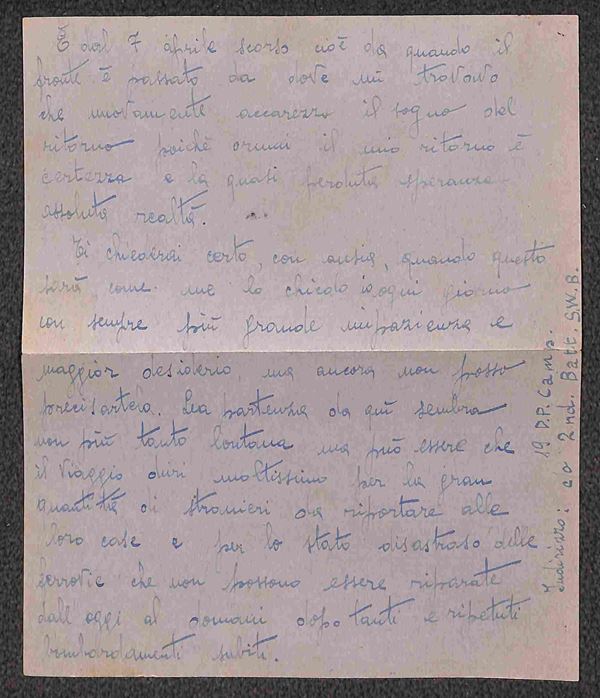 È dal 7 aprile scorso cioè da quando il
fronte è passato da dove mi trovavo
che nuovamente accarezzo il sogno del
ritorno poichè ormai il mio ritorno è
certezza e la quasi perduta speranza
assoluta realtà.
Ti chiederai certo, con ansia, quando questo
sarà come me lo chiedo io ogni giorno
con sempre più grande impazienza e
maggior desiderio, ma ancora non posso
precisartelo. La partenza da qui sembra
non più tanto lontana ma può essere che
il viaggio duri moltissimo per la gran
quantità di stranieri da riportare alle
loro case e per lo stato disastroso delle
ferrovie che non possono essere riparate
dall'oggi al domani dopo tanti e ripetuti
bombardamenti subiti.
Indirizzo: c/o 2nd. Batt. S.W.B.
19 D.P. Camp.